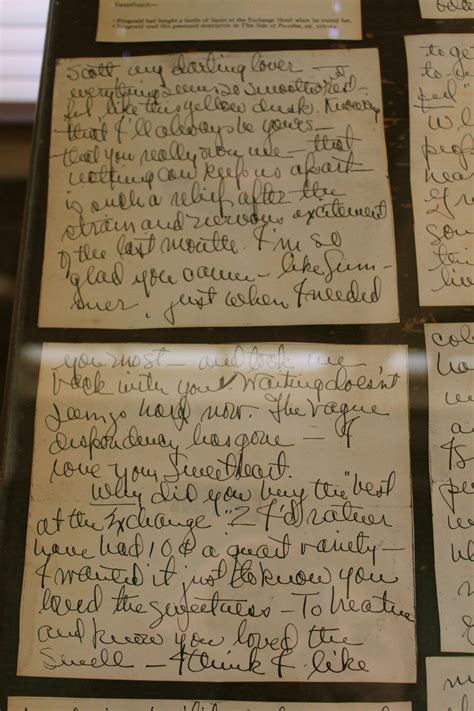 Sweetheart—
Fitzgerald had bought a bottle of liquor at the Exchange Hotel when he visited her.
Fitzgerald used this graveyard description in This Side of Paradise, pp.
Scott my darling lover —
everything seems so smooth and rest-
ful, like this yellow dusk. Knowing
that I'll always be yours —
that you really own me — that
nothing can keep us apart —
is such a relief after the
strain and nervous excitement
of the last month. I'm so
glad you came — like Sum-
mer, just when I needed
you most — and took me
back with you. Waiting doesn't
seem so hard now. The vague
despondency has gone — I
love you Sweetheart.
Why did you buy the "best
at the Exchange"? I'd rather
have had 10¢ a quart variety —
I wanted it just to know you
loved the sweetness — To breathe
and know you loved the
smell — I think I like